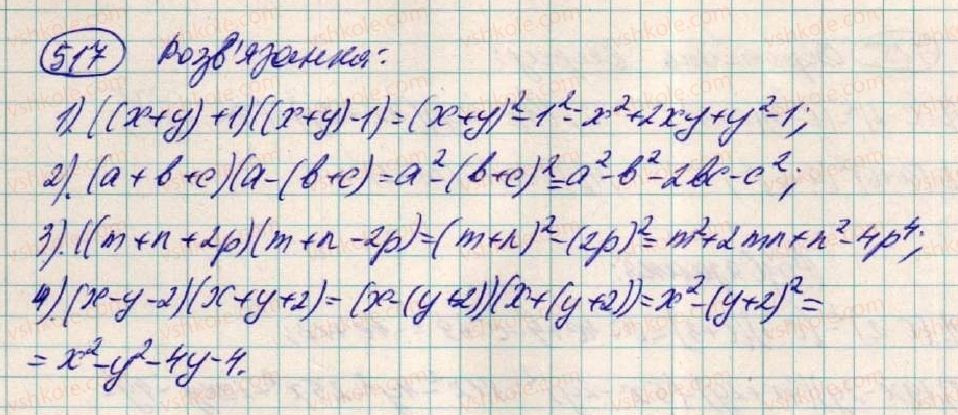 517 Розв'язання:
1). ((x+y)+1)((x+y)-1)=(x+y)²-1²=x²+2xy+y²-1;
2). (a+b+c)(a-(b+c)=a²-(b+c)²=a²-b²-2bc-c²;
3). ((m+n+2p)(m+n-2p)=(m+n)²-(2p)²=m²+2mn+n²-4p⁴;
4). (x-y-2)(x+y+2)=(x-(y+2))(x+(y+2))=x²-(y+2)²=
=x²-y²-4y-4.